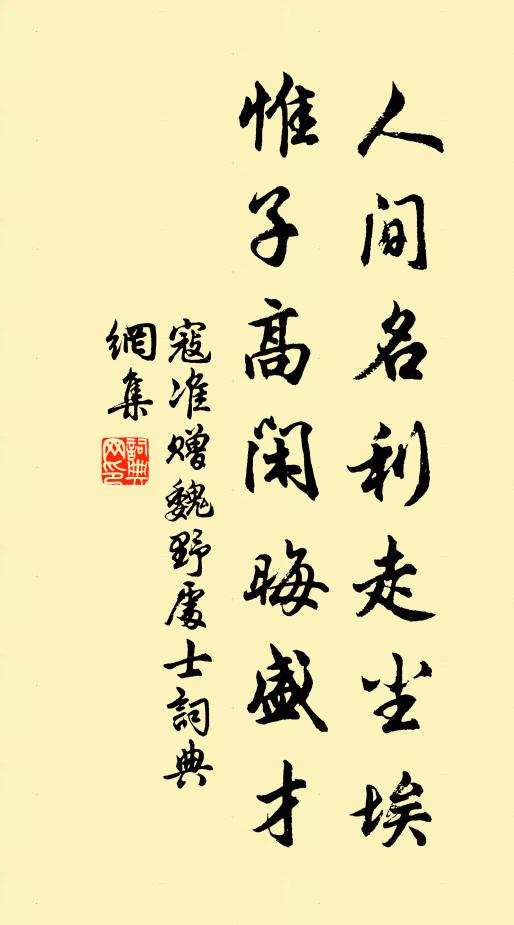 人间名利走尘埃
惟子高闲晦盛才
寇准赠魏野處士詞典
網集
詞典网印